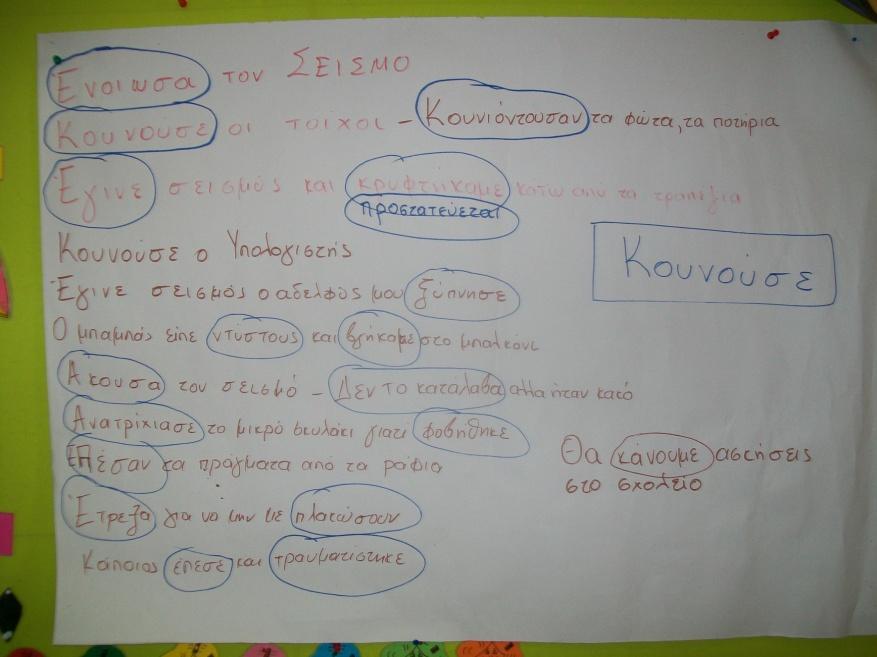 Ένοιωσα τον ΣΕΙΣΜΟ
Κουνούσε οι τοίχοι – Κουνιόντουσαν τα φώτα, τα ποτήρια
Έγινε σεισμός και κρυφτήκαμε κάτω από τα τραπέζια
προστατεύεται
Κουνούσε ο Υπολογιστής
Κουνούσε
Έγινε σεισμός ο αδελφός μου ξύπνησε
Ο μπαμπάς είπε ντύστους και βγήκαμε στο μπαλκόνι
Άκουσα τον σεισμό – Δεν το κατάλαβα αλλα ήταν κακό
Ανατρίχιασε το μικρό σκυλάκι γιατί φοβήθηκε
Επέσαν τα πράγματα από τα ράφια
Θα κάνουμε ασκήσεις
στο σχολείο
Έτρεξα για να μην με πλακώσουν
Κάποιος έπεσε και τραυματίστηκε